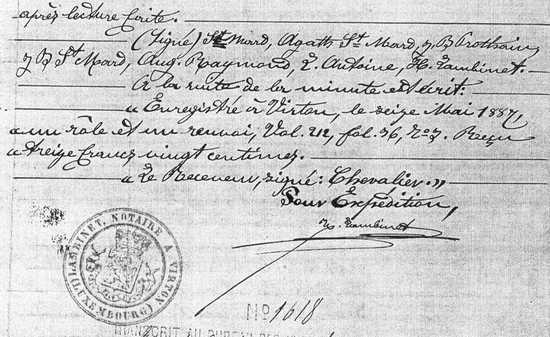 après lecture faite.
(Signé) St Mard, Agath St Mard, J B Prothain,
J B St Mard, Aug. Raymond, E. Antoine, H. Lambinet.
A la suite de la minute est écrit:
« Enregistré à Virton, le seize Mai 1887,
« un rôle et un renvoi, Vol. 212, fol. 36, No 7. Reçu
« treize francs vingt centimes.
« Le Receveur, signé: Chevalier. »
Pour Expédition,
H. Lambinet
LAMBINET, NOTAIRE A VIRTON
(LUXEMBOURG)
No 1618
TRANSCRIT AU BUREAU DES